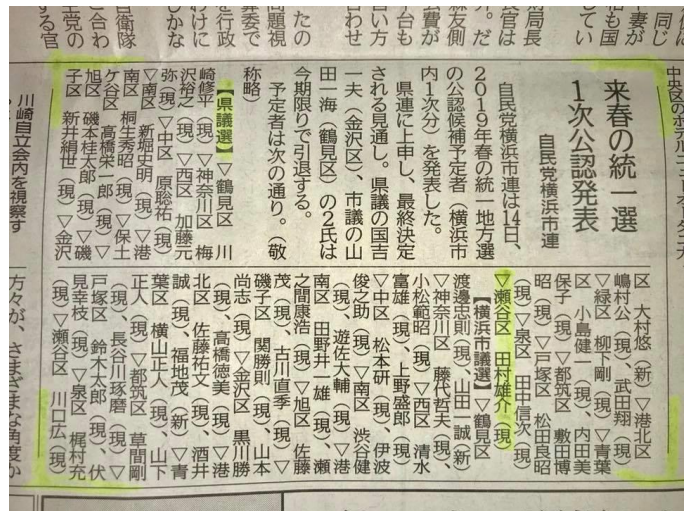 同じ
中央区のホテルニューオータニ
来春の統一選
1次公認発表
自民党横浜市連
自民党横浜市連は14日、
2019年春の統一地方選
の公認候補予定者(横浜市
内1次分)を発表した。
県連に上申し、最終決定
される見通し。県議の国吉
一夫(金沢区)、市議の山
田一海(鶴見区)の2氏は
今期限りで引退する。
予定者は次の通り。(敬
称略)
【県議選】▽鶴見区 川
崎修平(現)▽神奈川区 梅
沢裕之(現)▽西区 加藤元
弥(現)▽中区 原聡祐(現)
▽南区 新堀史明(現)▽港
南区 桐生秀昭(現)▽保土
ケ谷区 高橋栄一郎(現)▽
旭区 磯本桂太郎(現)▽磯
子区 新井絹世(現)▽金沢
区 大村悠(新)▽港北区
嶋村公(現)、武田翔(現)
▽緑区 柳下剛(現)▽青葉
区 小島健一(現)、内田美
保子(現)▽都筑区 敷田博
昭(現)▽戸塚区 松田良昭
(現)▽泉区 田中信次(現)
▽瀬谷区 田村雄介(現)
【横浜市議選】▽鶴見区
渡邊忠則(現)、山田一誠(新)
▽神奈川区 藤代哲夫(現)、
小松範昭(現)▽西区 清水
富雄(現)、上野盛郎(現)
▽中区 松本研(現)、伊波
俊之助(現)▽南区 渋谷健
(現)、遊佐大輔(現)▽港
南区 田野井一雄(現)、瀬
之間康浩(現)▽旭区 佐藤
茂(現)、古川直季(現)▽
磯子区 関勝則(現)、山本
尚志(現)▽金沢区 黒川勝
(現)、高橋徳美(現)▽港
北区 佐藤祐文(現)、酒井
誠(新)、福地茂(新)▽青
葉区 横山正人(現)、山下
正人(現)▽都筑区 草間剛
(現)、長谷川琢磨(現)▽
戸塚区 鈴木太郎(現)、伏
見幸枝(現)▽泉区 梶村充
(現)▽瀬谷区 川口広(現)
川崎自立会内を視察す
方々が、さまざまな角度か